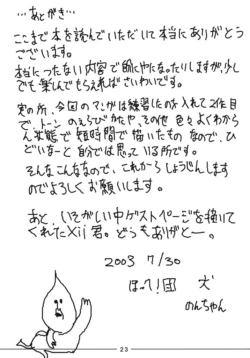 …あとがき…
ここまで本を読んでいただいて本当にありがとう
ございます。
本当につたない内容で節にやになったりしますが、少し
でも楽しんでもらえればさいわいです。
実の所、今回のマンガは練習したの入れて2作目
で、トーンのえらびかたや、その他色々よくわから
ん状態で短時間で描いたものなので、ひ
どいなーと自分では思っている所です。
そんなこんななので、これからしょうじんします
のでよろしくお願いします。
あと、いそがしい中ゲストページを描いて
くれたXii君。どうもありがとー。
2003 7/30
ほって!団 犬
のんちゃん
23